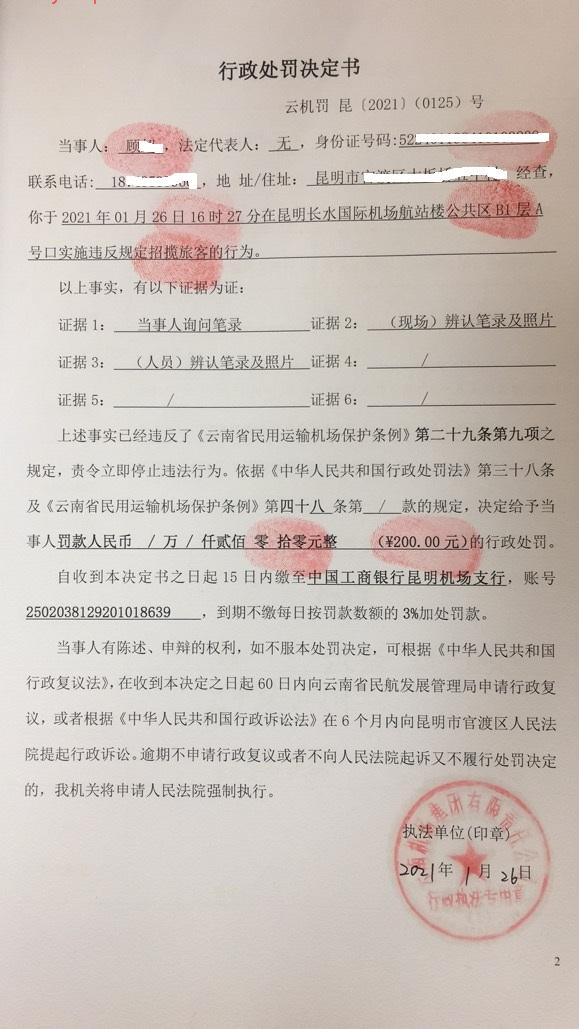 行政处罚决定书
云机罚 昆〔2021〕(0125)号
当事人: 顾 法定代表人: 无 ,身份证号码:
联系电话: ,地 址/住址: 昆明市 经查,
你于 2021 年 01 月 26 日 16 时 27 分在昆明长水国际机场航站楼公共区 B1 层 A
号口实施违反规定招揽旅客的行为。
以上事实,有以下证据为证:
证据 1: 当事人询问笔录 证据 2: (现场)辨认笔录及照片
证据 3: (人员)辨认笔录及照片 证据 4: /
证据 5: / 证据 6: /
上述事实已经违反了《云南省民用运输机场保护条例》第二十九条第九项之
规定,责令立即停止违法行为。依据《中华人民共和国行政处罚法》第三十八条
及《云南省民用运输机场保护条例》第四十八 条第 / 款的规定,决定给予当
事人罚款人民币 / 万 / 仟贰佰 零 拾零元整 (¥200.00 元)的行政处罚。
自收到本决定书之日起 15 日内缴至中国工商银行昆明机场支行,账号
2502038129201018639 ,到期不缴每日按罚款数额的 3%加处罚款。
当事人有陈述、申辩的权利,如不服本处罚决定,可根据《中华人民共和国
行政复议法》,在收到本决定之日起 60 日内向云南省民航发展管理局申请行政复
议,或者根据《中华人民共和国行政诉讼法》在 6 个月内向昆明市官渡区人民法
院提起行政诉讼。逾期不申请行政复议或者不向人民法院起诉又不履行处罚决定
的,我机关将申请人民法院强制执行。
执法单位(印章)
2021 年 1 月 26 日
行政执法专用章
2